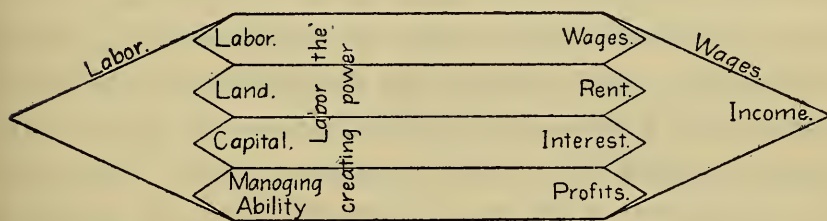 Labor.
Labor.
Land.
Capital.
Managing
Ability
Labor the
creating power
Wages.
Rent.
Interest.
Profits.
Wages.
Income.